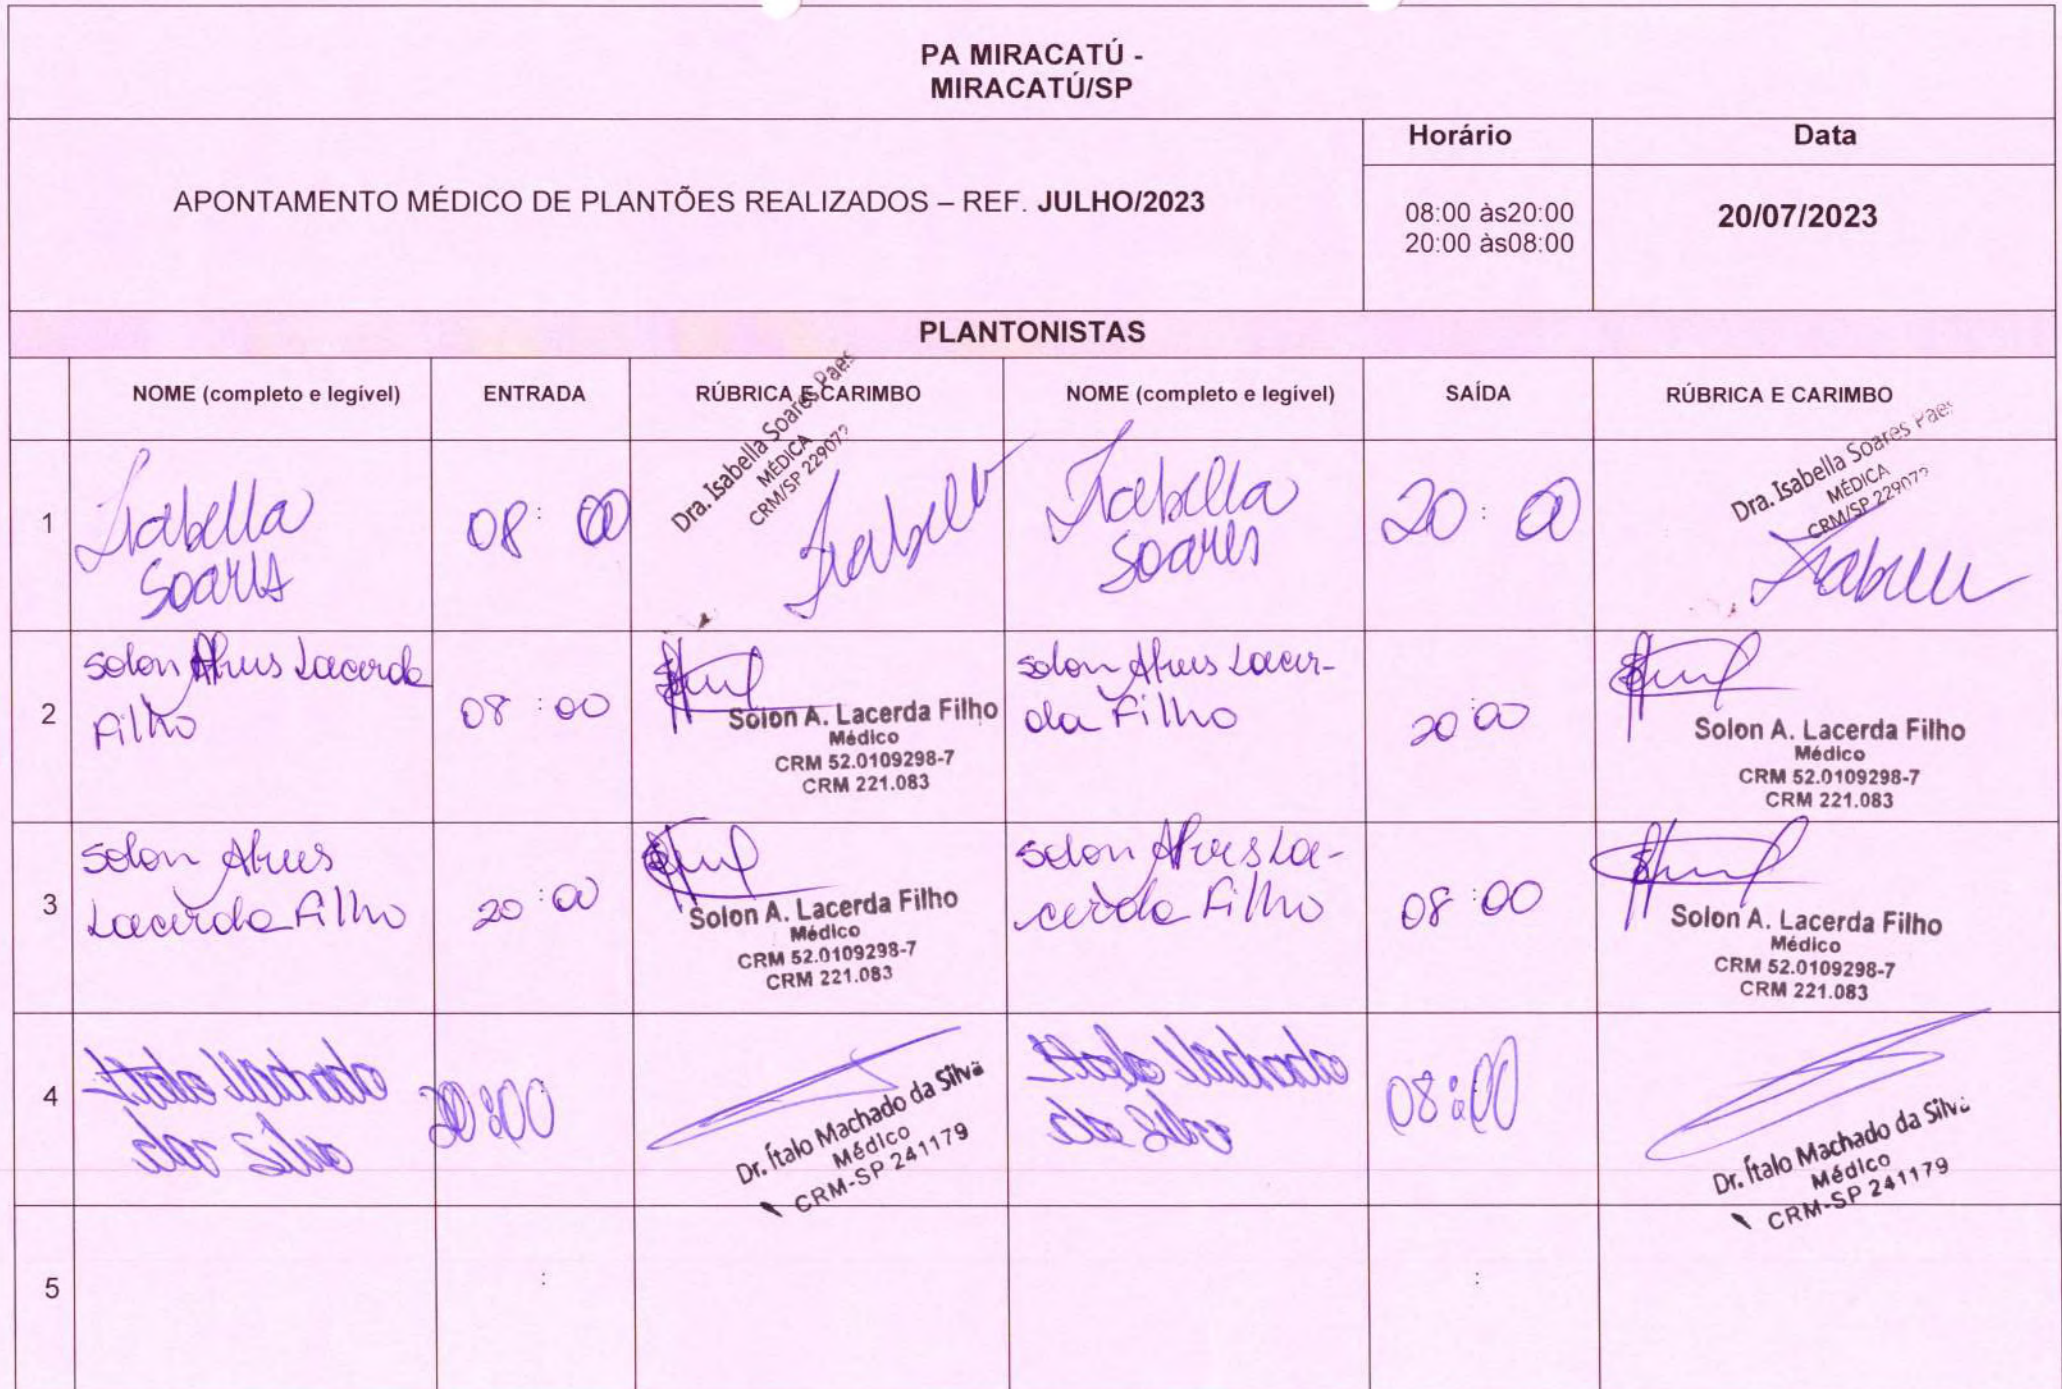 PA MIRACATÚ -
MIRACATÚ/SP
APONTAMENTO MÉDICO DE PLANTÕES REALIZADOS – REF. JULHO/2023
Horário
08:00 às20:00
20:00 às08:00
Data
20/07/2023
PLANTONISTAS
NOME (completo e legível)
ENTRADA
RÚBRICA E CARIMBO
NOME (completo e legível)
SAÍDA
RÚBRICA E CARIMBO
1
Isabella
Soares
08:00
Dra. Isabella Soares Paes
MÉDICA
CRM/SP 229072
Isabella
Isabella
Soares
20:00
Dra. Isabella Soares Paes
MÉDICA
CRM/SP 229072
Isabella
2
Solon Alves Lacerda
Filho
08:00
Solon A. Lacerda Filho
Médico
CRM 52.0109298-7
CRM 221.083
Solon Alves Lacer-
da Filho
20:00
Solon A. Lacerda Filho
Médico
CRM 52.0109298-7
CRM 221.083
3
Solon Alves
Lacerda Filho
20:00
Solon A. Lacerda Filho
Médico
CRM 52.0109298-7
CRM 221.083
Solon Alves La-
cerda Filho
08:00
Solon A. Lacerda Filho
Médico
CRM 52.0109298-7
CRM 221.083
4
Italo Machado
da Silva
20:00
Dr. Ítalo Machado da Silva
Médico
CRM-SP 241179
Italo Machado
da Silva
08:00
Dr. Ítalo Machado da Silva
Médico
CRM-SP 241179
5
:
: